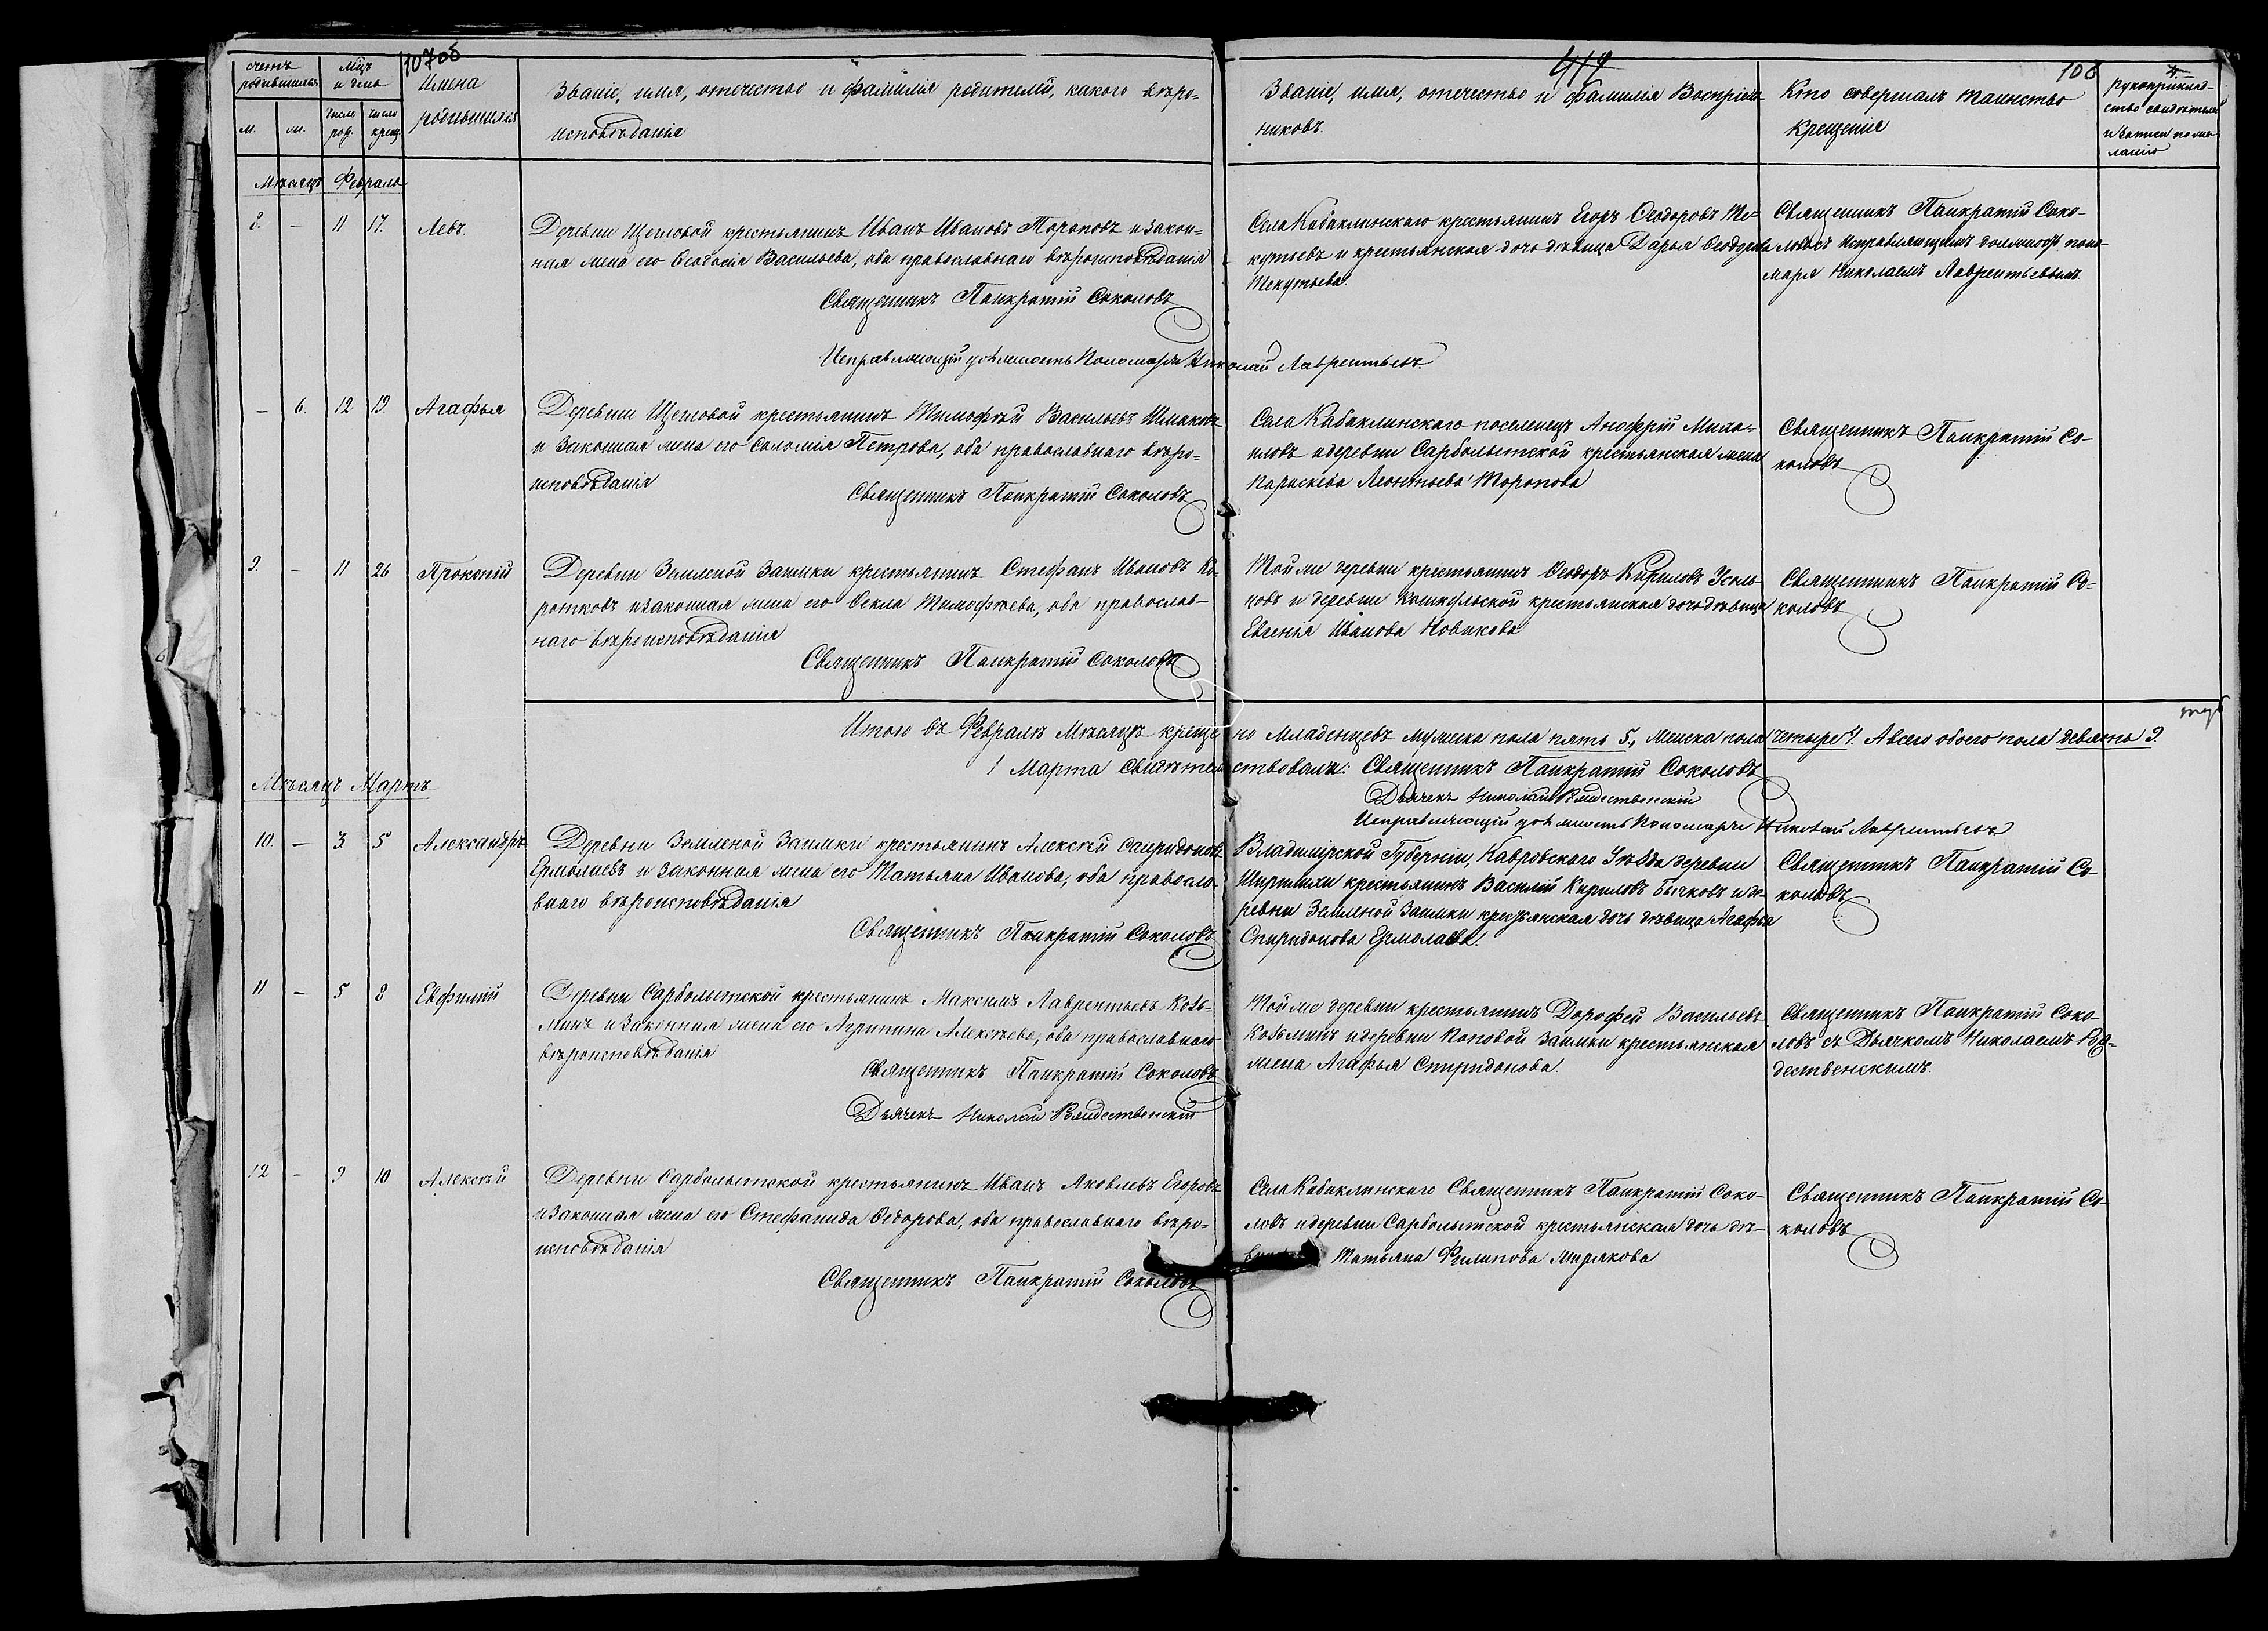 107об
412
108
счетъ родившихся
мцъ и день
м. ж.
число род. число крещ.
Имена родившихся
Званіе, имя, отечество и фамилія родителей, какого вѣро=
исповѣданія
Званіе, имя, отечество и фамилія Воспріем=
никовъ.
Кто совершалъ таинство
крещенія
Рукоприклад=
ство свидѣтелей
и записи по же=
ланію
Мѣсяцъ Февраль
8. — 11 17. Левъ
Деревни Щегловой крестьянинъ Иванъ Ивановъ Тороповъ и закон=
ная жена его Ѳеодосія Васильева, оба православнаго вѣроисповѣданія
Священникъ Панкратій Соколовъ
Исправляющій должность Пономаря Николай Лаврентьевъ.
Села Кабаклинскаго крестьянинъ Егоръ Ѳеодоровъ Те=
кутьевъ и крестьянская дочь дѣвица Дарья Ѳеодорова
Текутьева.
Священникъ Панкратій Соко=
ловъ съ Исправляющимъ должность поно=
маря Николаемъ Лаврентьевымъ.
— 6. 12 19 Агафья
Деревни Щегловой крестьянинъ Тимофѣй Васильевъ Шмаковъ
и законная жена его Соломія Петрова, оба православнаго вѣро=
исповѣданія
Священникъ Панкратій Соколовъ
Села Кабаклинскаго поселенецъ Анофрій Михай=
ловъ и деревни Сарбалыкской крестьянская жена
Параскева Леонтьева Торопова
Священникъ Панкратій Со=
коловъ
9. — 11 26 Прокопій
Деревни Земляной Заимки крестьянинъ Стефанъ Ивановъ Ко=
ротковъ и законная жена его Ѳекла Тимофѣева, оба православ=
наго вѣроисповѣданія
Священникъ Панкратій Соколовъ
Той же деревни крестьянинъ Ѳеодоръ Кириловъ Усоль=
цовъ и деревни Кошкульской крестьянская дочь дѣвица
Евгенія Иванова Новикова
Священникъ Панкратій Со=
коловъ
Итого въ Февралѣ Мѣсяцѣ крещено Младенцевъ мужеска пола пять 5., женска пола четыре 4. А всего обоего пола девять 9.
1 Марта Свидѣтельствовали: Священникъ Панкратій Соколовъ
Дьячекъ Николай Рождественскій
Исправляющій должность Пономаря Николай Лаврентьевъ
Мѣсяцъ Мартъ
10. — 3 5 Александръ
Деревни Земляной Заимки крестьянинъ Алексѣй Спиридоновъ
Ермолаевъ и законная жена его Татьяна Иванова, оба правосла=
внаго вѣроисповѣданія
Священникъ Панкратій Соколовъ
Владимірской Губерніи, Кавровского Уѣзда деревни
крестьянинъ Василій Кириловъ Бычковъ и де=
ревни Земляной Заимки крестьянская дочь дѣвица Агафья
Спиридонова Ермолаева.
Священникъ Панкратій Со=
коловъ
11 — 5 8 Евфимій
Деревни Сарбалыкской крестьянинъ Максимъ Лаврентьевъ Козь=
минъ и законная жена его Агрипина Алексѣева, оба православнаго
вѣроисповѣданія
Священникъ Панкратій Соколовъ
Дьячекъ Николай Рождественскій
Той же деревни крестьянинъ Дорофей Васильевъ
Козьминъ и деревни Поповой Заимки крестьянская
жена Агафья Спиридонова.
Священникъ Панкратій Соко=
ловъ съ Дьячкомъ Николаемъ Рож=
дественскимъ.
12 — 9 10 Алексѣй
Деревни Сарбалыкской крестьянинъ Иванъ Яковлевъ Егоровъ
и законная жена его Стефанида Ѳедорова, оба православнаго вѣро=
исповѣданія
Священникъ Панкратій Соколовъ
Села Кабаклинскаго Священникъ Панкратій Соко=
ловъ и деревни Сарбалыкской крестьянская дочь дѣ=
Татьяна Филипова Ширякова
Священникъ Панкратій Со=
коловъ